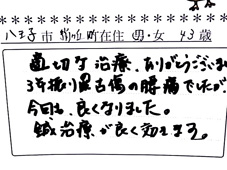 八王子市 町在住 男・女 43歳
適切な治療、ありがとうございま
3年振り尾古傷の腰痛でしたが
今回も、良くなりました。
鍼治療が良く効きます。